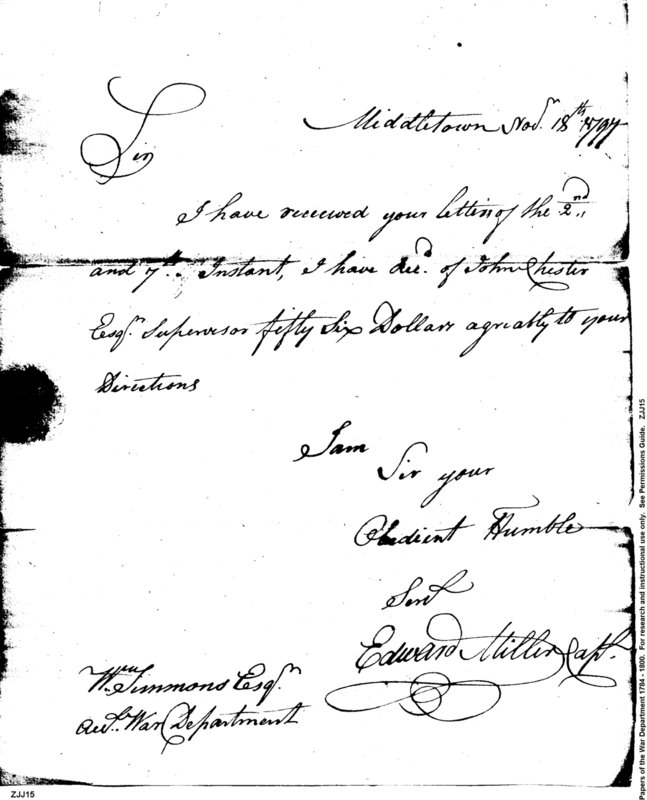 Middletown Novr 18th 1797
Sir
I have received your letters of the 2nd
and 7th Instant, I have Recd of John Chester
Esqr Supervisor fifty Six Dollars agriably to your
Directions
I am
Sir your
Obedient Humble
Servt
Edward Miller Capt.
Wm Simmons Esqr
Acct War Department
ZJJ15
Papers of the War Department 1784 - 1800. For research and instructional use only. See Permissions Guide. ZJJ15